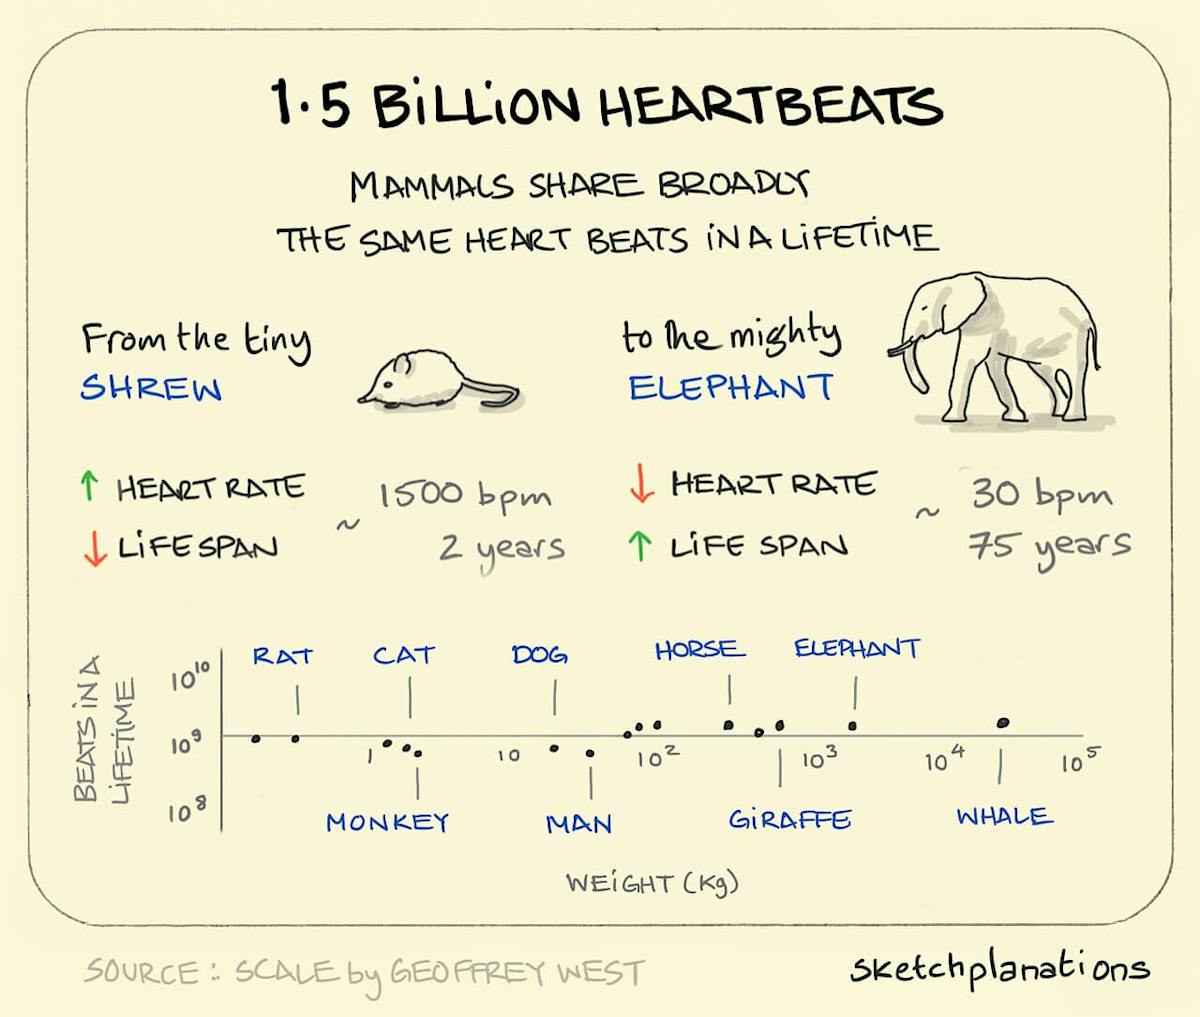 1.5 BiLLiON HEARTBEATS
MAMMALS SHARE BROADLY
THE SAME HEART BEATS iN A LiFETiME
From the tiny
SHREW
to the mighty
ELEPHANT
↑ HEART RATE
↓ LiFE SPAN
~ 1500 bpm
2 years
↓ HEART RATE
↑ LiFE SPAN
~ 30 bpm
75 years
BEATS iN A
LiFETiME
10¹⁰
10⁹
10⁸
RAT
CAT
DOG
HORSE
ELEPHANT
1
10
10²
10³
10⁴
10⁵
MONKEY
MAN
GiRAFFE
WHALE
WEiGHT (Kg)
SOURCE: SCALE by GEOFFREY WEST
sketchplanations